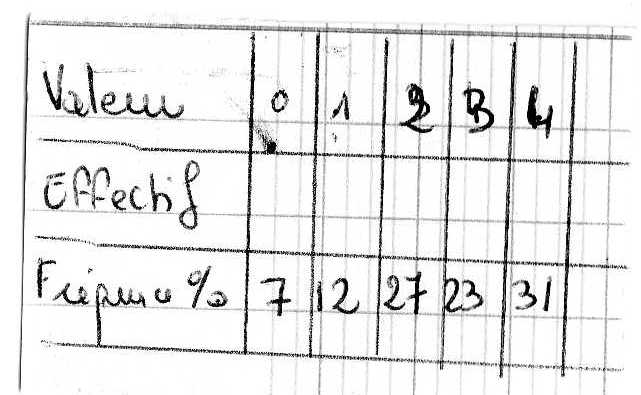 Valeur 0 1 2 3 4
Effectif
Fréquence % 7 12 27 23 31